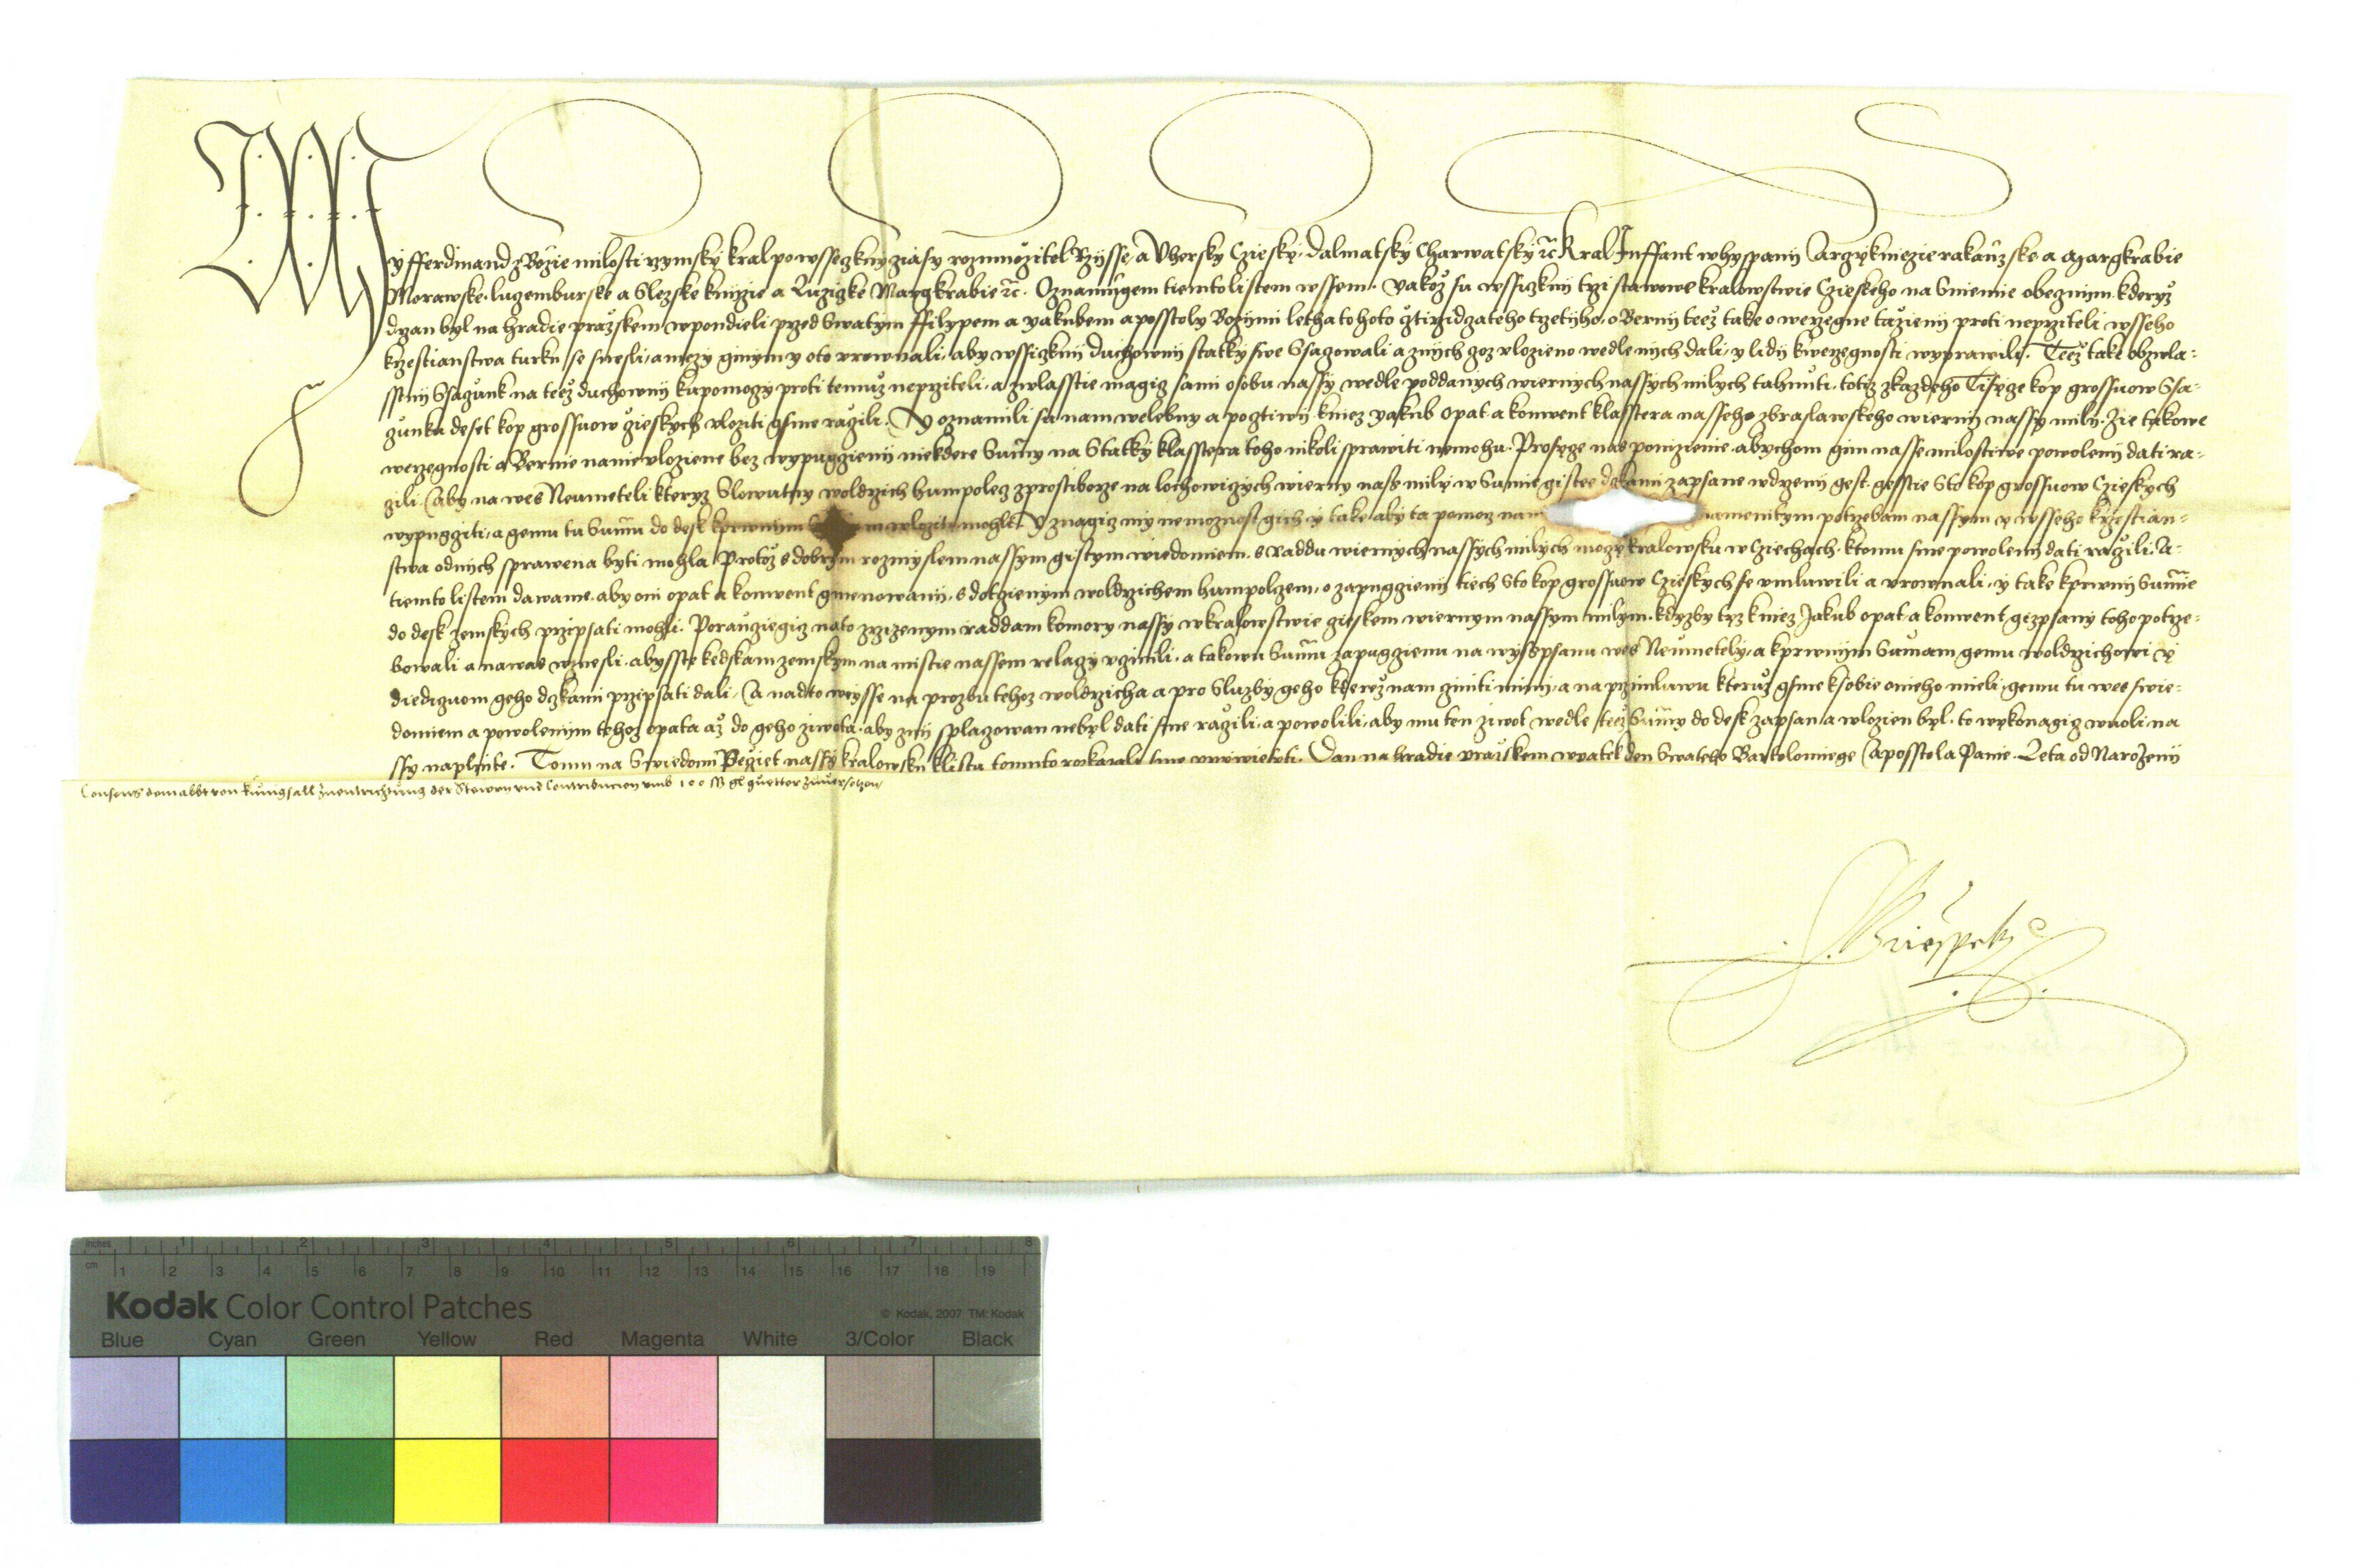 My fferdinand z Božie milosti rzymsky kral po wsseczkny cziasy rozmnožitel Rzisse, a Vhersky Czesky, Dalmatsky Charwatsky ꝛc̃ Kral Inffant w hyspanij Arczykniezie rakauzske a Margkrabie
Morawske, luczemburske a Slezske knijzie a Lužiczke Margkrabie ꝛc̃. Oznamugem tiemto listem wssem. Yakož su wssiczknij trzi stawowe kralowstwie Czieskeho na Sniemie obeznijm kderyž
drzan byl na hradie pražskem w pondieli przed Swatym ffilypem a yakubem aposstoly Bozijmi letha tohoto cztirzidczateho trzetijho, o Bernij teež take o werzegne taženij proti neprziteli wsseho
krzestianstwa turku se snesli, a mezy ginym y oto vrownali, aby wssiczknij duchownij statky swe Ssaczowali a znijch czoz vlozieno wedle nijch dali, y lidij k werzegnosti wyprawili. Teež take obzwla-
sstnij Ssaczunk na teež duchownij ku pomoczy proti temuž neprziteli, a zwlasstie magicz sami osobu nassy wedle poddanych wiernych nassych milych tahnuti, totiz zkazdeho Tisycze kop grossuow Ssa-
czunku deset kop grossuow czieskych vloziti gsme raczili. Y oznamili su nam welebny a pocztiwy kniez yakub opat a konwent klasstera nasseho zbraslawskeho wiernij nassy milij, Zie takowe
werzegnosti a Bernie na nie vloziene bez wypuggienij niekdere Summy na Statky klasstera toho nikoli sprawiti nemohu. Prosycze nas ponizienie abychom gim nasse milostiwe powolenij dati ra-
czili. Aby na wes Neumeteli kteryz Slowutny woldrzich humpolecz z prostiborze na lochowiczych wierny nass mily w Sumie gistee dskami zapsane w drzenij gest. gesstie Sto kop grossuow Czieskych
wypuggiti, a gemu tu Summu do desk k prwnim wlozit mohli. Vznagicz my nemoznost gich y take aby ta pomocz nam namenitym potrzebam nassym y wsseho krzestian-
stwa od nich sprawena byti mohla. Protož s dobrym rozmyslem nassym gistym wiedomiem, s raddu wiernych nassych milych moczy kralowsku w Cziechach, k tomu sme powolenij dati raczili. A
tiemto listem dawame, aby oni opat a konwent gmenowani, s dotczienym woldrzichem humpolczem, o zapuggienij tiech Sto kop grossuow Czieskych se vmluwili a vrownali, y take k prwnij Summie
do desk zemskych przipsati mohli. Poraucziegicz na to zrzizenym raddam komory nassy w kralowstwie czieskem wiernym nassym milym, kdyzby tyz kniez Jakub opat a konwent gezpsany toho potrze-
bowali a na was wznesli, abysste ke dskam zemskym na mistie nassem relaczy vczinili, a takowu Summu zapuggienu na wysspsanu wes Neumetely, a k prwnijm Sumam gemu woldrzichowi y
diediczuom geho dczkami przipsati dali. A nad to weysse na prozbu tehoz woldrzicha a pro Sluzby geho kterez nam cziniti mini, a na przimluwu kteruž gsme k sobie o nieho mieli, gemu tu wes s wie-
domiem a powolenijm tehoz opata až do geho ziwota, aby znij splaczowan nebyl dati sme raczili, a powolili, aby mu ten ziwot wedle teež Summy do desk zapsan a wlozien byl, to wykonagicz wuoli na
ssy naplnite. Tomu na Swiedomi Peczet nassy kralowsku k listu tomuto rozkazali sme przywiesyti. Dan na hradie prazskem w patek den Swateho Bartolomiege Aposstola Panie. Leta od Narozenij
Consens dem abbt von künigsall zu entrichtung der Stewrn vnd Contribucion vmb 100 ß gl guetter zuuersetzen